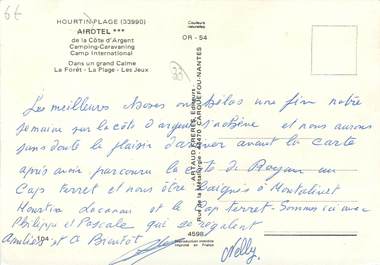 6€
HOURTIN-PLAGE (33990)
AIROTEL ***
de la Côte d'Argent
Camping-Caravaning
Camp International
Dans un grand Calme
La Forêt - La Plage - Les Jeux
Couleurs naturelles
OR - 54
33
ARTAUD FRÈRES, Éditeurs
Rue de la Métallurgie - 44470 CARQUEFOU-NANTES
Les meilleures choses ont hélas une fin notre
semaine sur la côte d'argent s'achève et nous aurons
sans doute le plaisir d'arriver avant la carte
après avoir parcouru la côte de Royan au
Cap Ferret et nous être baignés à Montalivet
Hourtin Lacanau et le Cap Ferret - Sommes ici avec
Philippe et Pascale qui se régalent
Amitiés et à Bientôt
Nelly
104
4598
Reproduction interdite
Imprimé en France